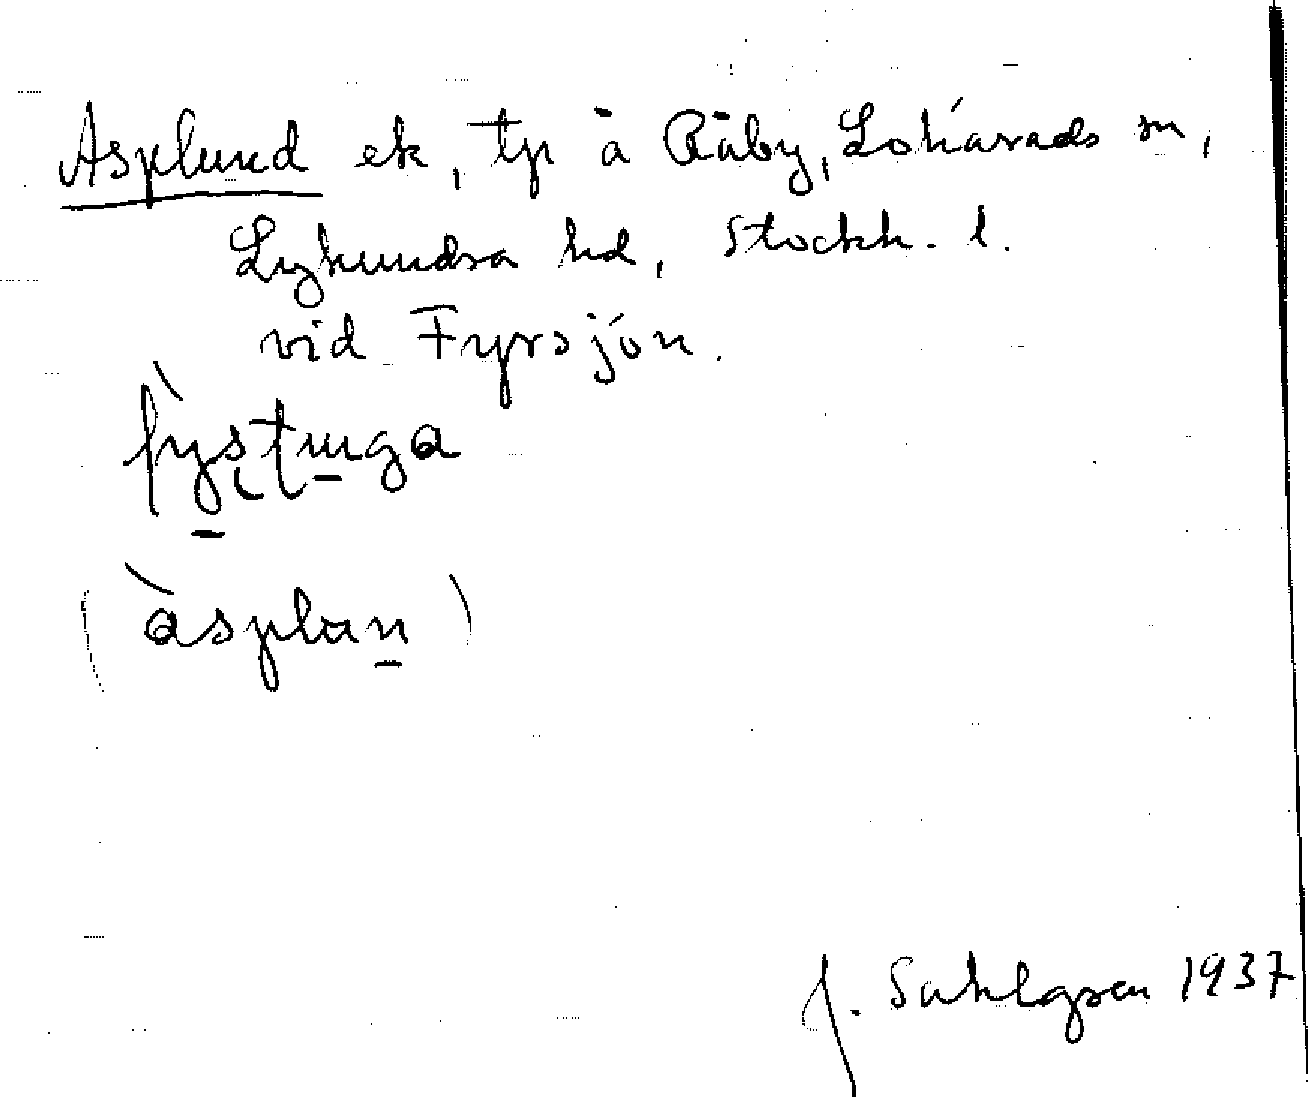 Asplund ek, tp å Råby, Lohärads sn,
Lyhundra hd, Stockh. l.
vid Fyrsjön.
fỳstuga
(àsplun)
J. Sahlgren 1937